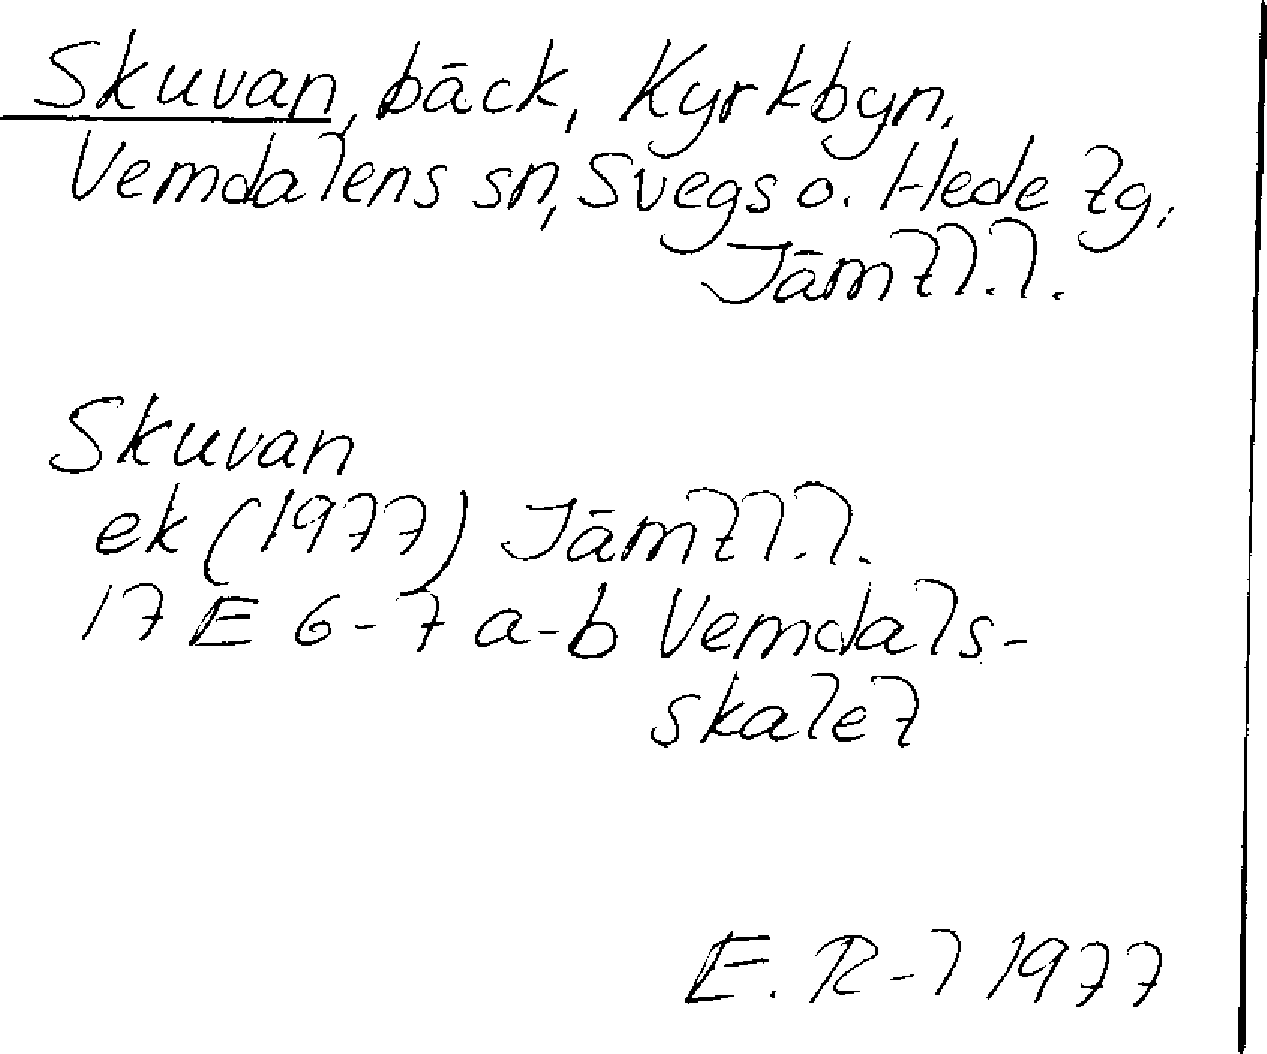 Skuvan, bäck, Kyrkbyn,
Vemdalens sn, Svegs o. Hede tg,
Jämtl. l.
Skuvan
ek (1977) Jämtl. l.
17 E 6-7 a-b Vemdals-
skalet
E. R-l 1977